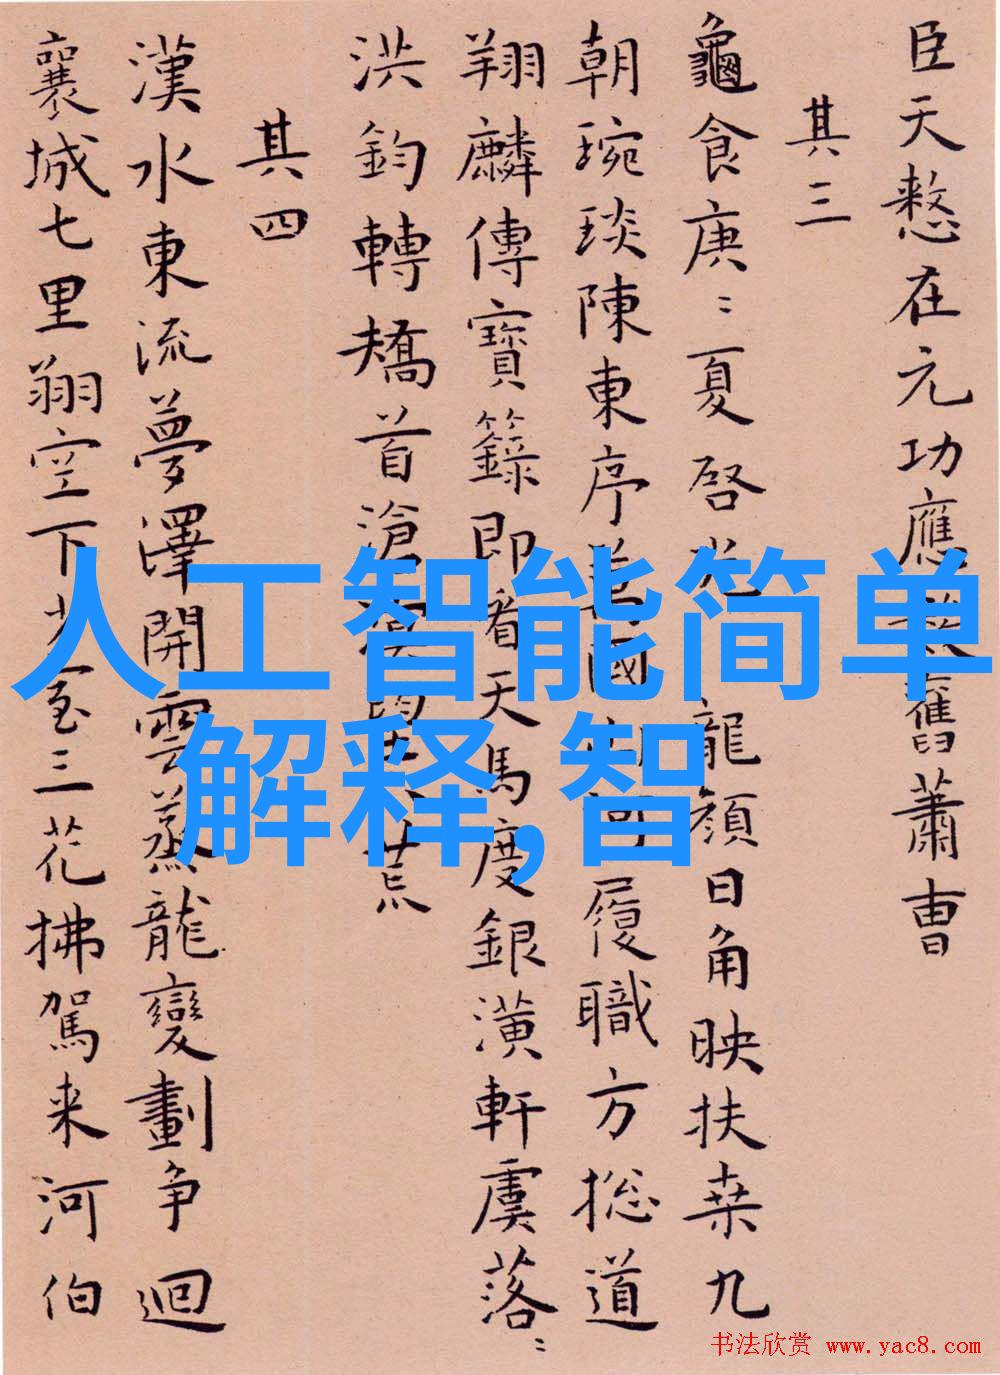 臣天憗在元功應舊蕭曹
其三
龜食庚〻夏啓龍顏日角映扶桒九
朝琬琰陳東序國河履職方揔道
翔麟傳寶籙即看天馬度銀潢軒虞落〻
洪鈞轉矯首滄荒
其四
漢水東流夢澤開雲蒸龍變劃争迴
襄城七里翔空下三花拂駕来河伯
人工智能简单
解释,智
书法欣赏 www.yac8.com